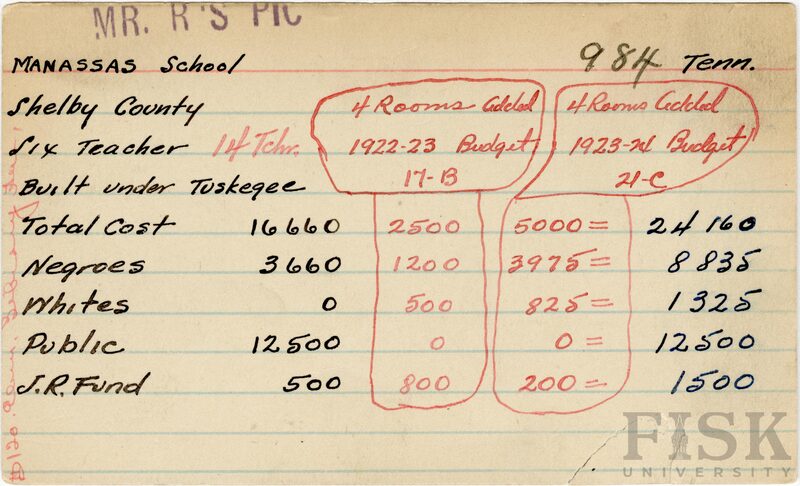 MR. R'S PIC
MANASSAS School 984 Tenn.
Shelby County 4 Rooms Added 4 Rooms Added
Six Teacher 14 Tchr. 1922-23 Budget 1923-24 Budget
Built under Tuskegee 17-B 21-C
Total Cost 16660 2500 5000 = 24160
Negroes 3660 1200 3975 = 8835
Whites 0 500 825 = 1325
Public 12500 0 0 = 12500
J.R. Fund 500 800 200 = 1500
FISK
UNIVERSITY